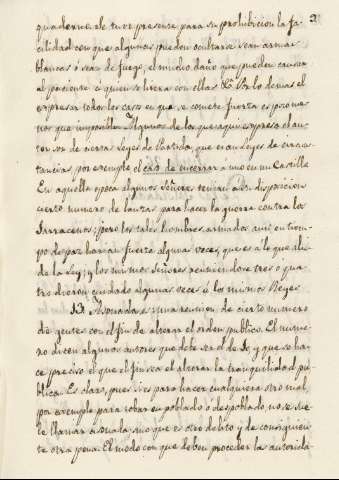 2
quaderna. Se tuvo presente para su prohibicion la fa-
cilidad con que algunos pueden ocultarse sean armas
blancas ó sean de fuego, el mucho daño que pueden causar
al paciente a quien se hiera con ellas &c. Por lo demas el
expresar todos los casos en que se comete fuerza es poco me-
nos que imposible. Algunos de los que aqui expresa el au-
tor son de ciertas Leyes de Partida, que eran Leyes de circuns-
tancias, por exemplo el caso de encerrar a uno en un Castillo
En aquella epoca algunos Señores tenian a su disposicion
cierto numero de lanzas para hacer la guerra contra los
Sarracenos; pero los tales hombres armados aun en tiem-
po de paz harian fuerza algunas veces, que es á lo que alu-
de la Ley; y los mismos Señores reuniendose tres o qua-
tro dieron cuidado algunas veces á los mismos Reyes
Asonada es una reunion de cierto numero
de gentes con el fin de alterar el orden publico. El nume-
ro dicen algunos autores que debe ser el de 10, y que se ha-
ce preciso el que el fin sea el alterar la tranquilidad pú-
blica. Es claro, pues si es para hacer cualquiera otro mal,
por exemplo para robar en poblado o despoblado, no se sue-
le llamar asonada sino que es otro delito y de consiguien-
te otra pena. El modo con que deben proceder las autorida-